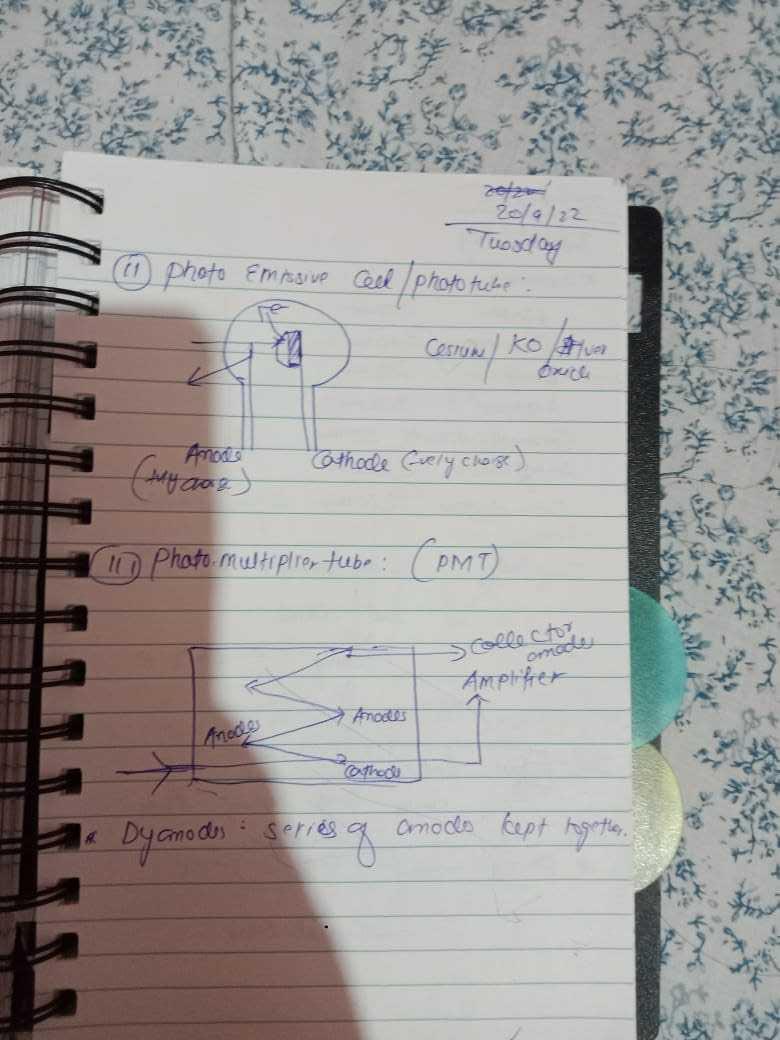 20/9/22
Tuesday
(ii) Photo Emissive Cell/phototube:
e
Cesium/ KO/Silver
oxide
Anode
Cathode (-vely charge)
(+vly charge)
(iii) Photo.multiplier tube: (PMT)
Collector
anode
Amplifier
Anodes
Anodes
Cathode
* Dyanodes: series of anodes kept together.